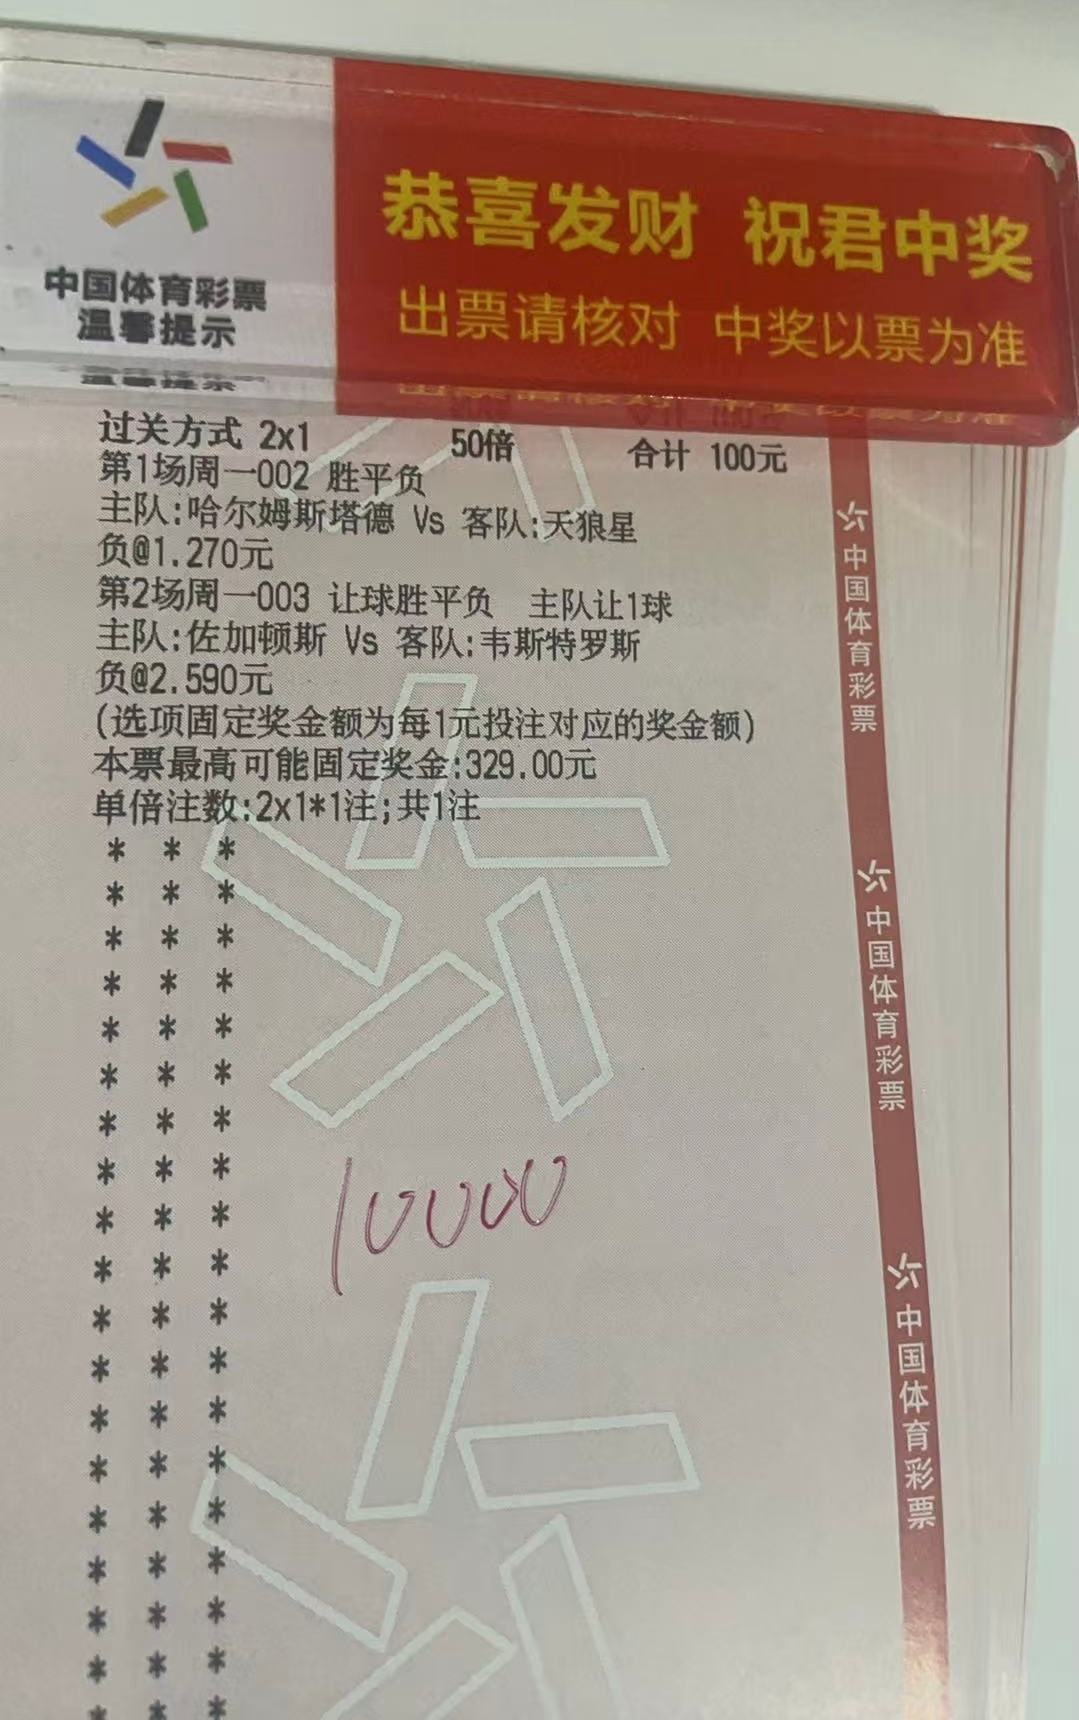 中国体育彩票
温馨提示
恭喜发财 祝君中奖
出票请核对 中奖以票为准
过关方式 2x1 50倍 合计 100元
第1场周一002 胜平负
主队:哈尔姆斯塔德 Vs 客队:天狼星
负@1.270元
第2场周一003 让球胜平负 主队让1球
主队:佐加顿斯 Vs 客队:韦斯特罗斯
负@2.590元
(选项固定奖金额为每1元投注对应的奖金额)
本票最高可能固定奖金:329.00元
单倍注数:2x1*1注;共1注
* * *
* * *
* * *
* * *
* * *
* * *
* * *
* * *
* * *
* * *
* * *
* * *
* * *
* * *
* * *
* * *
* * *
* * *
* * *
10000
中国体育彩票
中国体育彩票
中国体育彩票